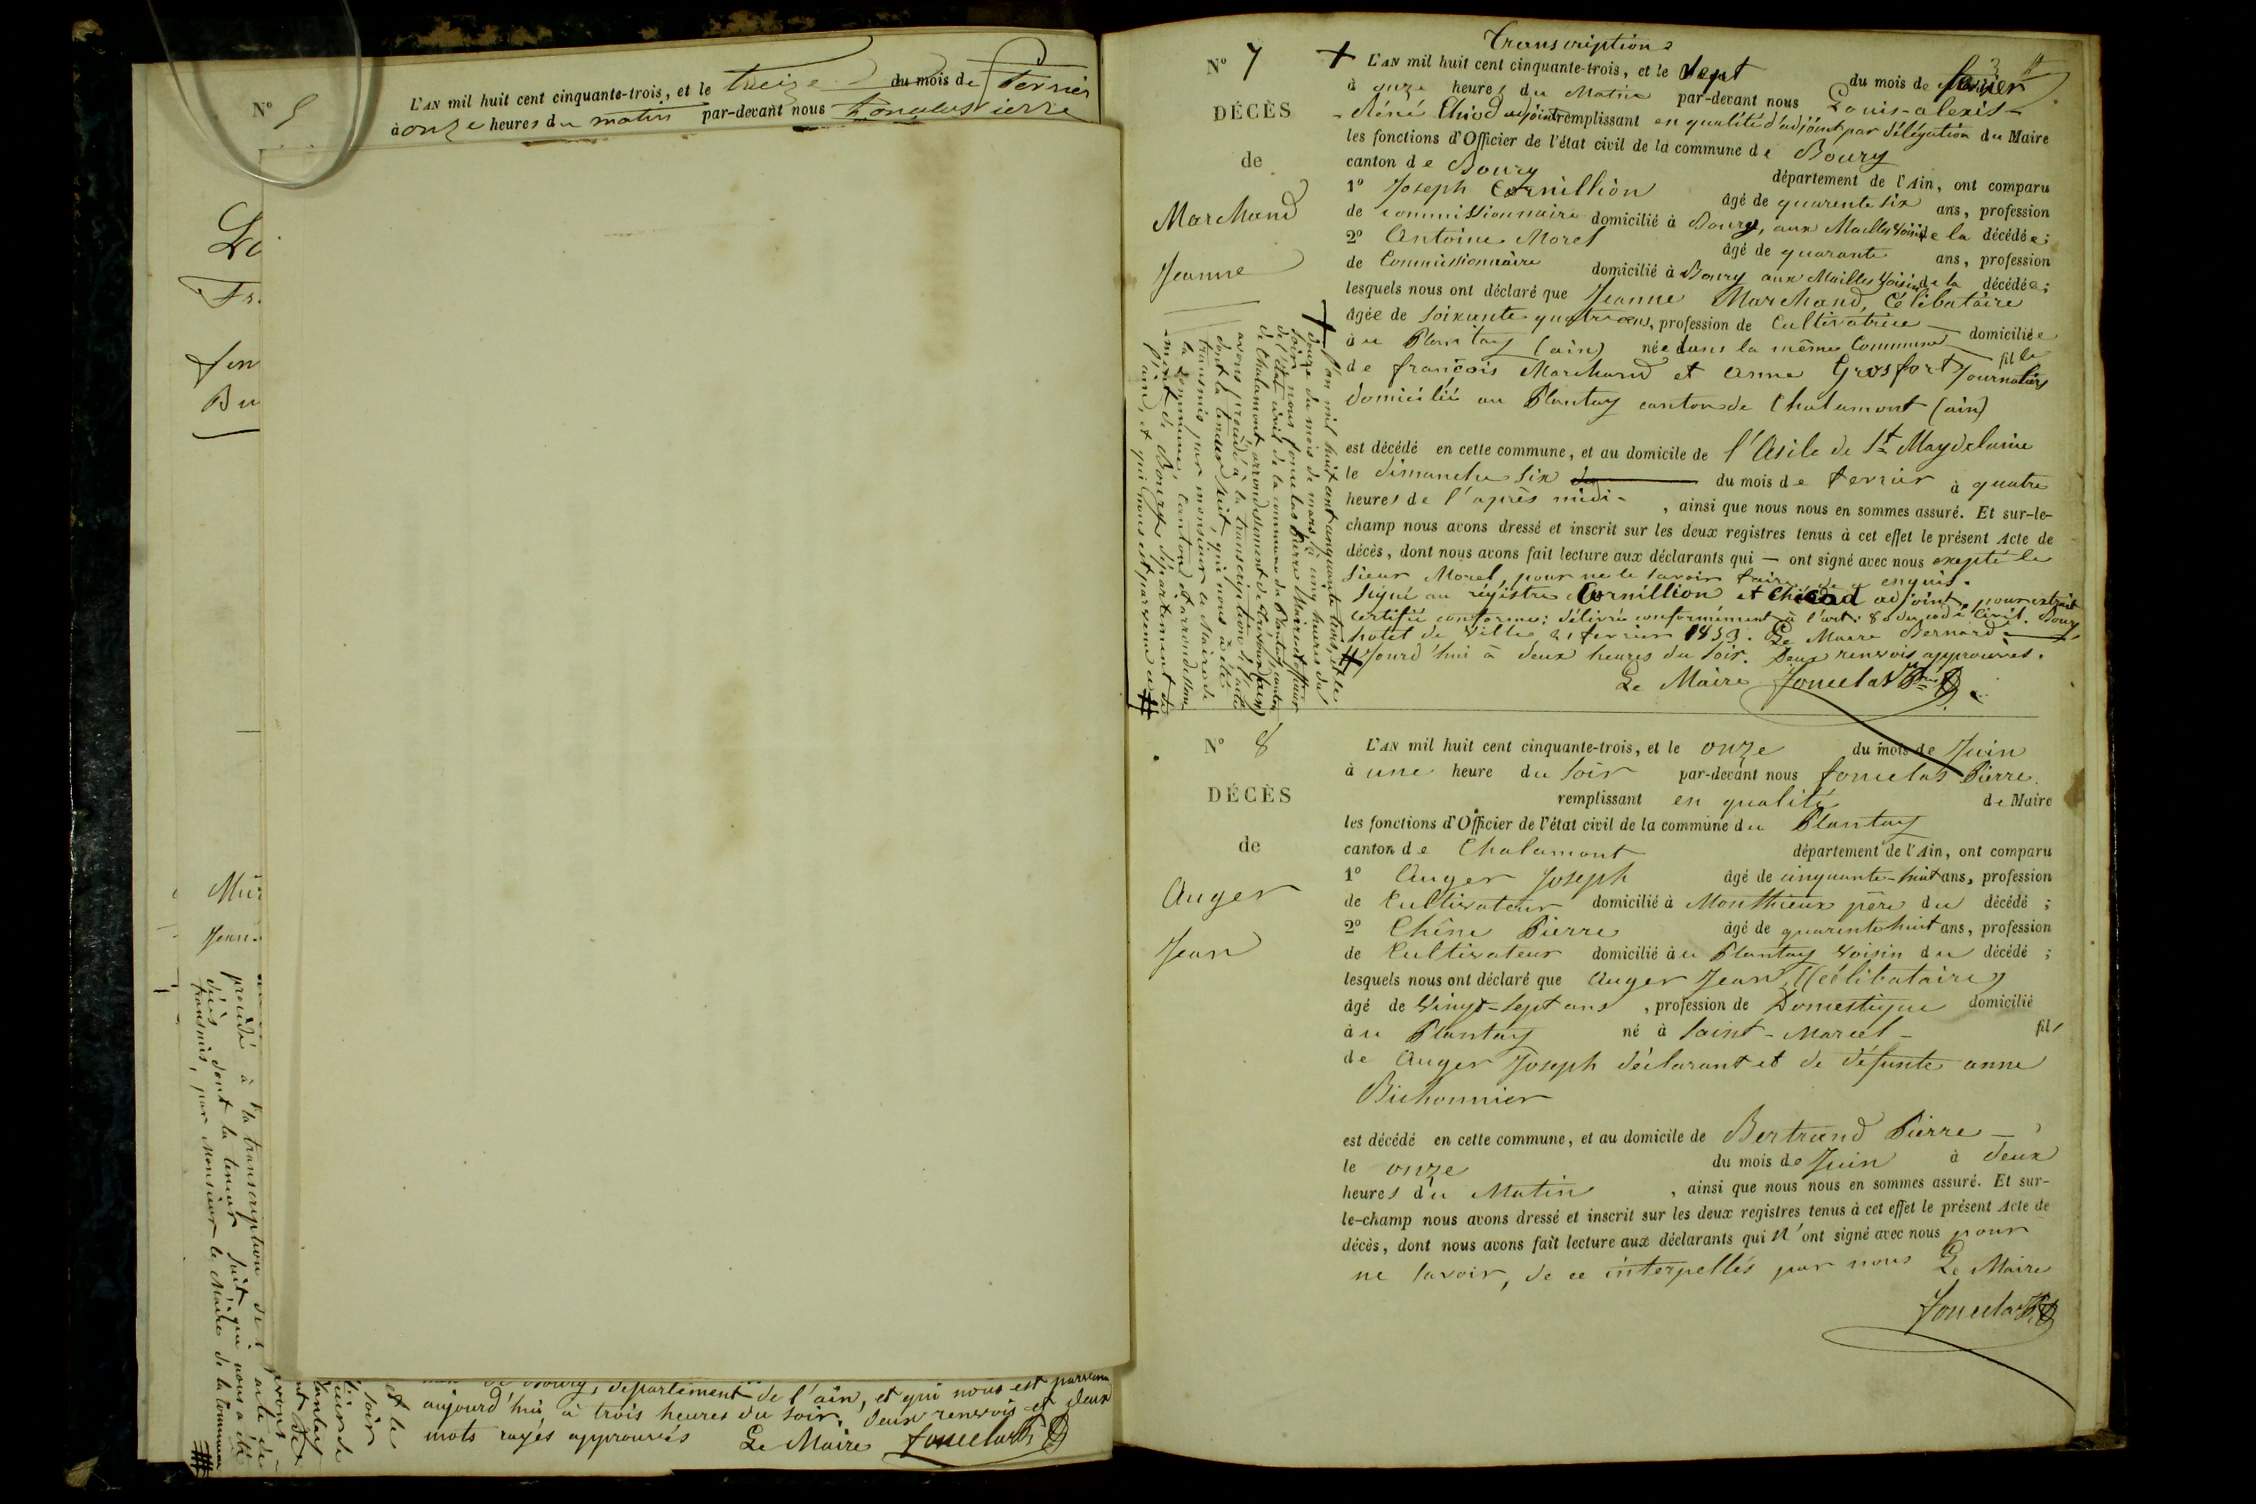 N° 5
L'AN mil huit cent cinquante-trois, et le treize du mois de fevrier
à onze heures du matin par-devant nous fonclas Pierre
aujourd'hui à trois heures du soir. deux renvois et deux
mots rayés approuvés Le Maire fonclas
procédé à la transcription de l'acte de
décès, dont la teneur suit, qui nous a été
transmis, par Monsieur le Maire de la commune
département de l'ain, et qui nous est parvenu
Transcription
N° 7
DÉCÈS
de
Marchand
Jeanne
L'AN mil huit cent cinquante-trois, et le Sept du mois de fevrier
à onze heures du Matin par-devant nous Louis-alexis-
Réné Chiod adjoint remplissant en qualité d'adjoint par délégation du Maire
les fonctions d'Officier de l'état civil de la commune de Bourg
canton de Bourg département de l'Ain, ont comparu
1° Joseph Cornillion âgé de quarente six ans, profession
de commissionnaire domicilié à Bourg, aux Mailles voisin de la décédée;
2° Antoine Morel âgé de quarante ans, profession
de Commissionnaire domicilié à Bourg aux Mailles Voisin de la décédée;
lesquels nous ont déclaré que Jeanne Marchand, Célibataire
âgée de soixante quatre ans, profession de Cultivatrice domiciliée
au Plantay (ain) née dans la même Commune fille
de françois Marchand et anne Grosfort Journaliers
domiciliés au Plantay canton de Chalamont (ain)
est décédé en cette commune, et au domicile de l'Asile de Ste Magdelaine
le dimanche six du mois de fevrier à quatre
heures de l'après midi - , ainsi que nous nous en sommes assuré. Et sur-le-
champ nous avons dressé et inscrit sur les deux registres tenus à cet effet le présent Acte de
décès, dont nous avons fait lecture aux déclarants qui — ont signé avec nous exepté le
sieur Morel, pour ne le savoir faire de ce enquis.
Signé au régistre Cornillion et Chiod adjoint, pour extrait
certifié conforme; délivré conformément à l'art. 80 du code Civil. Bourg
hotel de Ville 21 fevrier 1853. Le Maire Bernard.
# jourd'hui à deux heures du soir. Deux renvois approuvés.
Le Maire fonclas
+ l'an mil huit cent cinquante trois, et le
douze du mois de mars, à cinq heures du
soir, nous fonclas Pierre Maire et officier
de l'état civil de la commune du Plantay, canton
de Chalamont arrondissement de Trévoux (ain)
avons procédé à la transcription de l'acte
dont la teneur suit, qui nous a été
transmis par monsieur le Maire de
la Commune, Canton et arrondisse
ment de Bourg département de
l'ain, et qui nous est parvenu ce #
N° 8
DÉCÈS
de
Auger
Jean
L'AN mil huit cent cinquante-trois, et le onze du mois de Juin
à une heure du soir par-devant nous fonclas Pierre
remplissant en qualité de Maire
les fonctions d'Officier de l'état civil de la commune du Plantay
canton de Chalamont département de l'Ain, ont comparu
1° Auger Joseph âgé de cinquante-huit ans, profession
de Cultivateur domicilié à Monthieux père du décédé ;
2° Chêne Pierre âgé de quarente huit ans, profession
de Cultivateur domicilié au Plantay voisin du décédé ;
lesquels nous ont déclaré que Auger Jean, (célibataire)
âgé de Vingt-sept ans , profession de Domestique domicilié
au Plantay né à Saint-Marcel- fils
de Auger Joseph déclarant et de défunte anne
Bichonnier
est décédé en cette commune, et au domicile de Bertrand Pierre —
le onze du mois de Juin à deux
heures du Matin , ainsi que nous nous en sommes assuré. Et sur-
le-champ nous avons dressé et inscrit sur les deux registres tenus à cet effet le présent Acte de
décès, dont nous avons fait lecture aux déclarants qui n'ont signé avec nous pour
ne savoir, de ce interpellés par nous Le Maire
fonclas